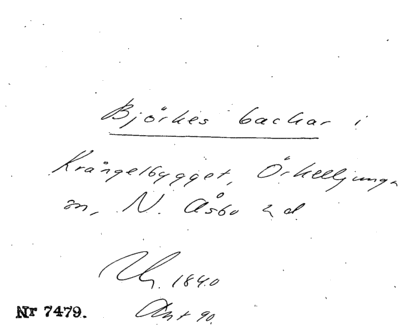 Björkes backar i
Krångelbygget, Örkelljunga
sn, N. Åsbo hd.
1840
Nr 7479.
90.